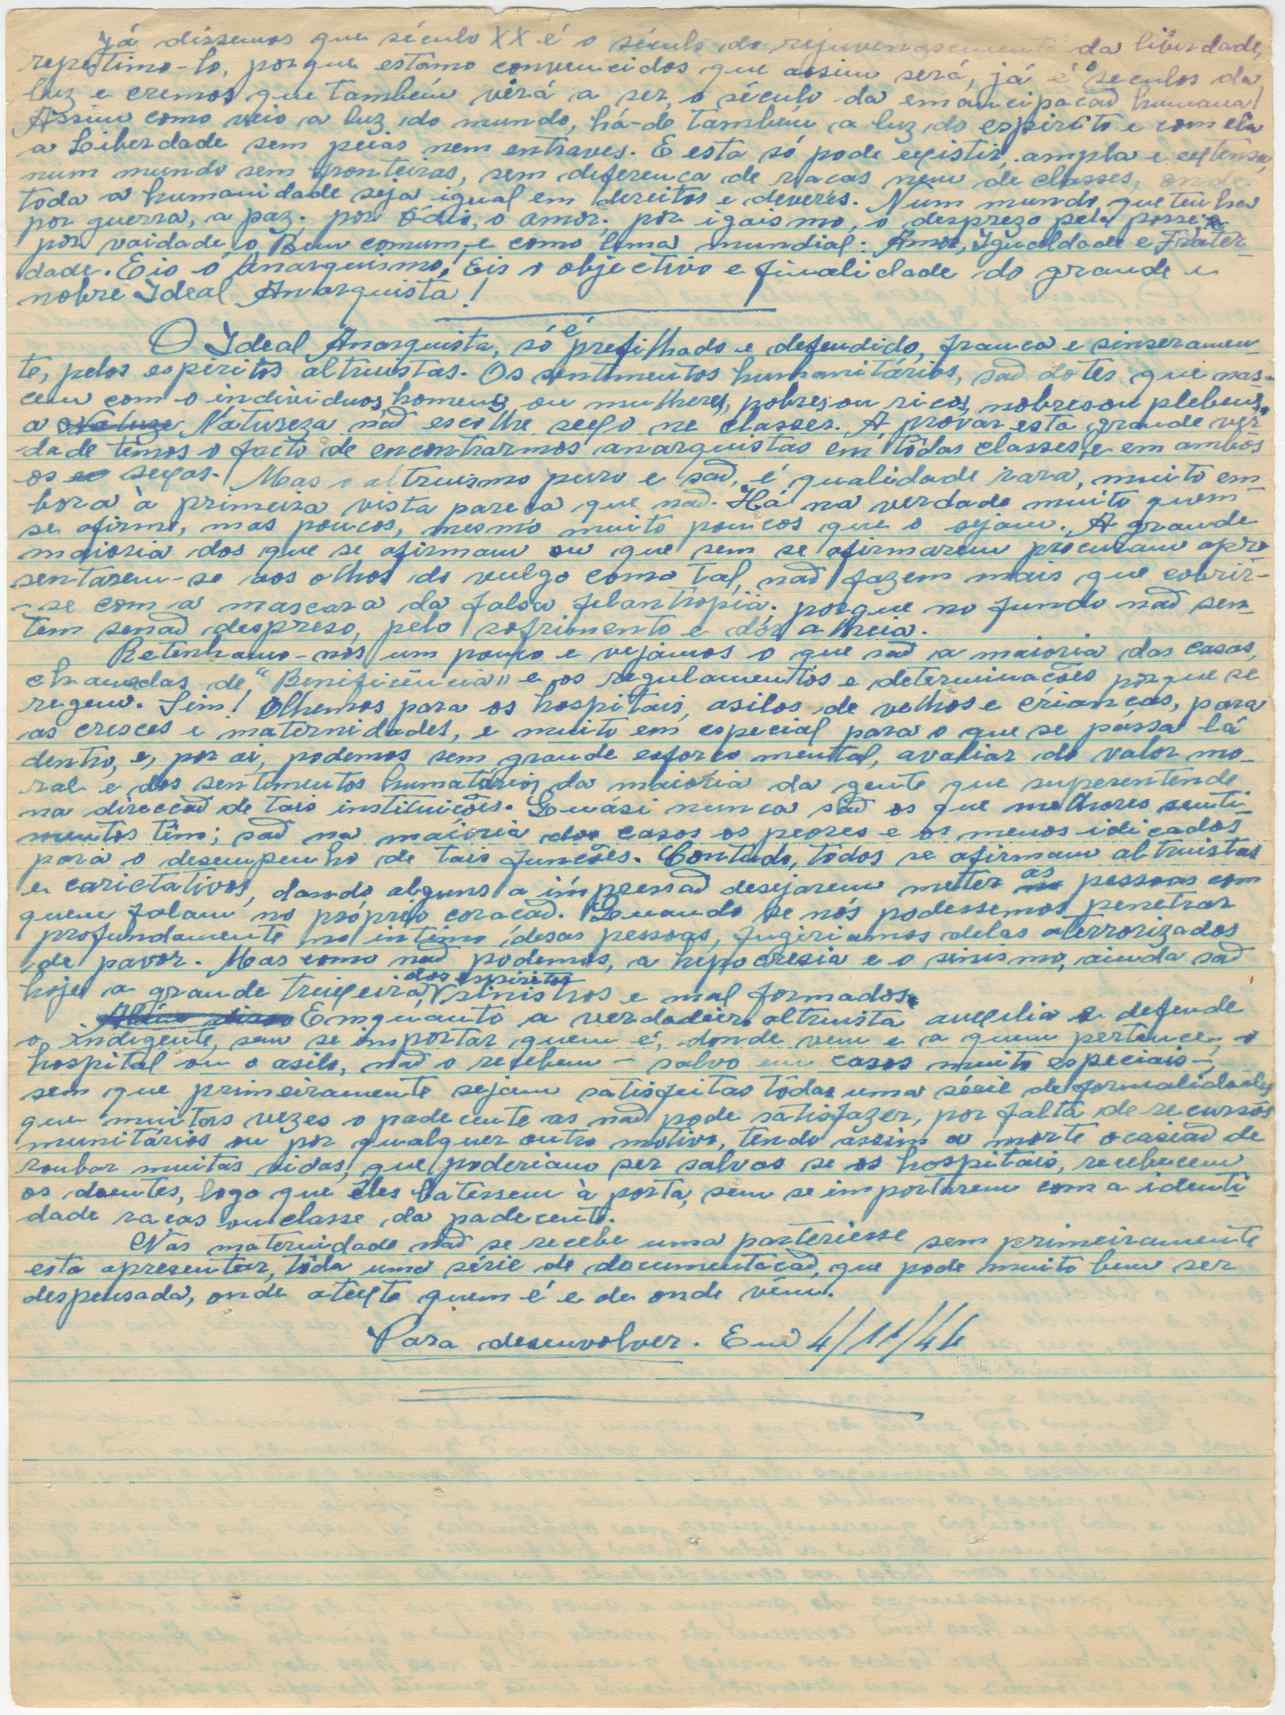 Já dissemos que século XX é o século do rejuvenescimento da liberdade,
repetimo-lo, porque estamo convencidos que assim será, já é o seculos da
luz e cremos que também virá a ser o século da emancipacaõ humana!
Assim como veio a luz do mundo, há-de tambem a luz do espírito e com ela
a Liberdade sem peias nem entraves. E esta só pode existir, ampla e extensa,
num mundo sem fronteiras, sem diferenca de racas nem de classes, onde
toda a humanidade seja igual em direitos e deveres. Num mundo, que tenha
por guerra, a paz. por ódio, o amor. por igaismo, o desprezo pela posse e
por vaidade, o Bem comum, e como lema mundial. Amor, Igualdade e Frater-
dade. Eis o Anarquismo! Eis o objectivo e finalidade do grande e
nobre Ideal Anarquista!
O Ideal Anarquista, só é prefilhado e defendido, franca e sinseramen-
te, pelos espíritos altruistas. Os sentimentos humanitários, saõ dotes que nas-
cem com o individuos, homens ou mulheres, pobres ou ricos, nobres ou plebeus,
a Natureza naõ escolhe sexo ne classes. A provar esta grande ver-
dade temos o facto de encontrarmos anarquistas em tôdas classes, e em ambos
os sexos. Mas o altruismo puro e saõ, é qualidade rara, muito em
bora à primeira vista pareca que naõ. Há na verdade muito quem
se afirme, mas poucos, mesmo muito poucos que o sejam. A grande
maioria dos que se afirmam ou que sem se afirmarem procuram apre
sentarem-se aos olhos do vulgo como tal, naõ fazem mais que cobrir-
-se com a mascara da falsa filantropia. porque no fundo naõ sen-
tem senaõ despreso, pelo sofrimento e dôr alheia.
Retenhamo-nos um pouco e vejamos o que saõ a maioria das casas,
chamadas de "Beneficiência" e os regulamentos e determinacões porque se
regem. Sim! Olhemos para os hospitais, asilos de velhos e criancas, para
as creces e maternidades, e muito em especial para o que se passa lá
dentro, e, por aí, podemos sem grande esforco mental, avaliar do valôr mo-
ral e dos sentimentos humatários da maioria da gente que superentende
na direccaõ de tais instituicões. Quasi nunca saõ os que melhores senti-
mentos têm; saõ na maioria dos casos os peores e os menos idicados
para o desempenho de tais funcões. Contudo, todos se afirmam altruistas
e carictativos, dando alguns a impressaõ desejarem meter as pessoas com
quem falam no próprio coracaõ. Quando se nós podessemos penetrar
profundamente no intimo desas pessoas, fugiriamos delas aterrorizados
de pavor. Mas como naõ podemos, a hipocresia e o sinismo, ainda saõ
hoje a grande trixeira, dos espiritos sinistros e mal formados.
Emquanto a verdadeiro altruista auxilia e defende
o indigente, sem se importar quem é, donde vem e a quem pertence, o
hospital ou o asilo, naõ o recebem - salvo em casos muito especiais -,
sem que primeiramente sejam satisfeitas tôdas uma série de formalidades
que muitas vezes o padecente as naõ pode satisfazer, por falta de recursos
munitários ou por qualquer outro motivo, tendo assim a morte ocasiaõ de
roubar muitas vidas, que poderiam ser salvas se os hospitais, recebecem
os doentes, logo que êles batessem à porta, sem se importarem com a identi
dade racas ou classe da padecente.
Nas maternidade naõ se recebe uma parteriesse sem primeiramente
esta apresentar, tôda uma série de documentacaõ, que pode muito bem ser
despensada, onde atexte quem é e de onde vêm.
Para desenvolver. Em 4/11/44